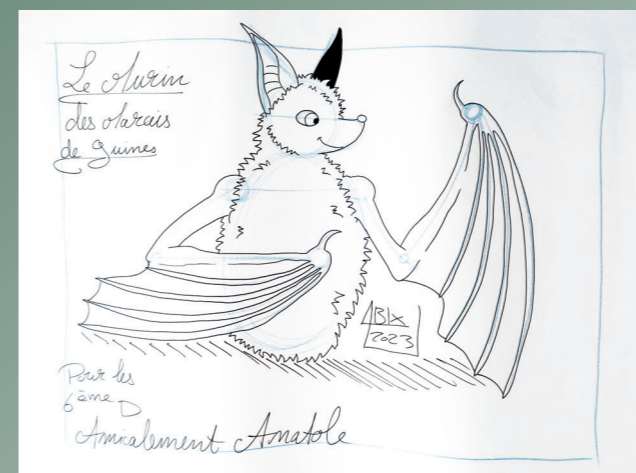 Le Murin
des Marais
de Guines
ABIX
2023
Pour les
6ème D
Amicalement Anatole